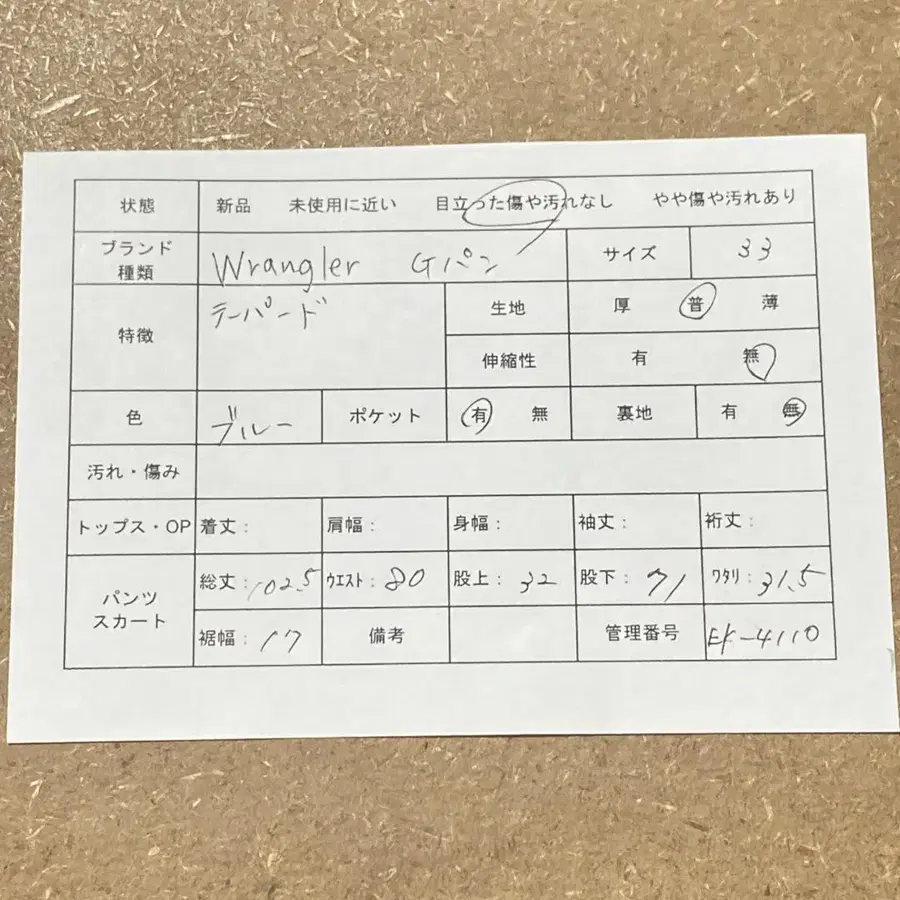 状態 新品 未使用に近い 目立った傷や汚れなし やや傷や汚れあり
ブランド
種類 Wrangler Gパン サイズ 33
特徴 テーパード 生地 厚 普 薄
伸縮性 有 無
色 ブルー ポケット 有 無 裏地 有 無
汚れ・傷み
トップス・OP 着丈: 肩幅: 身幅: 袖丈: 裄丈:
パンツ
スカート 総丈: 102.5 ウエスト: 80 股上: 32 股下: 71 ワタリ: 31.5
裾幅: 17 備考 管理番号 EK-4110